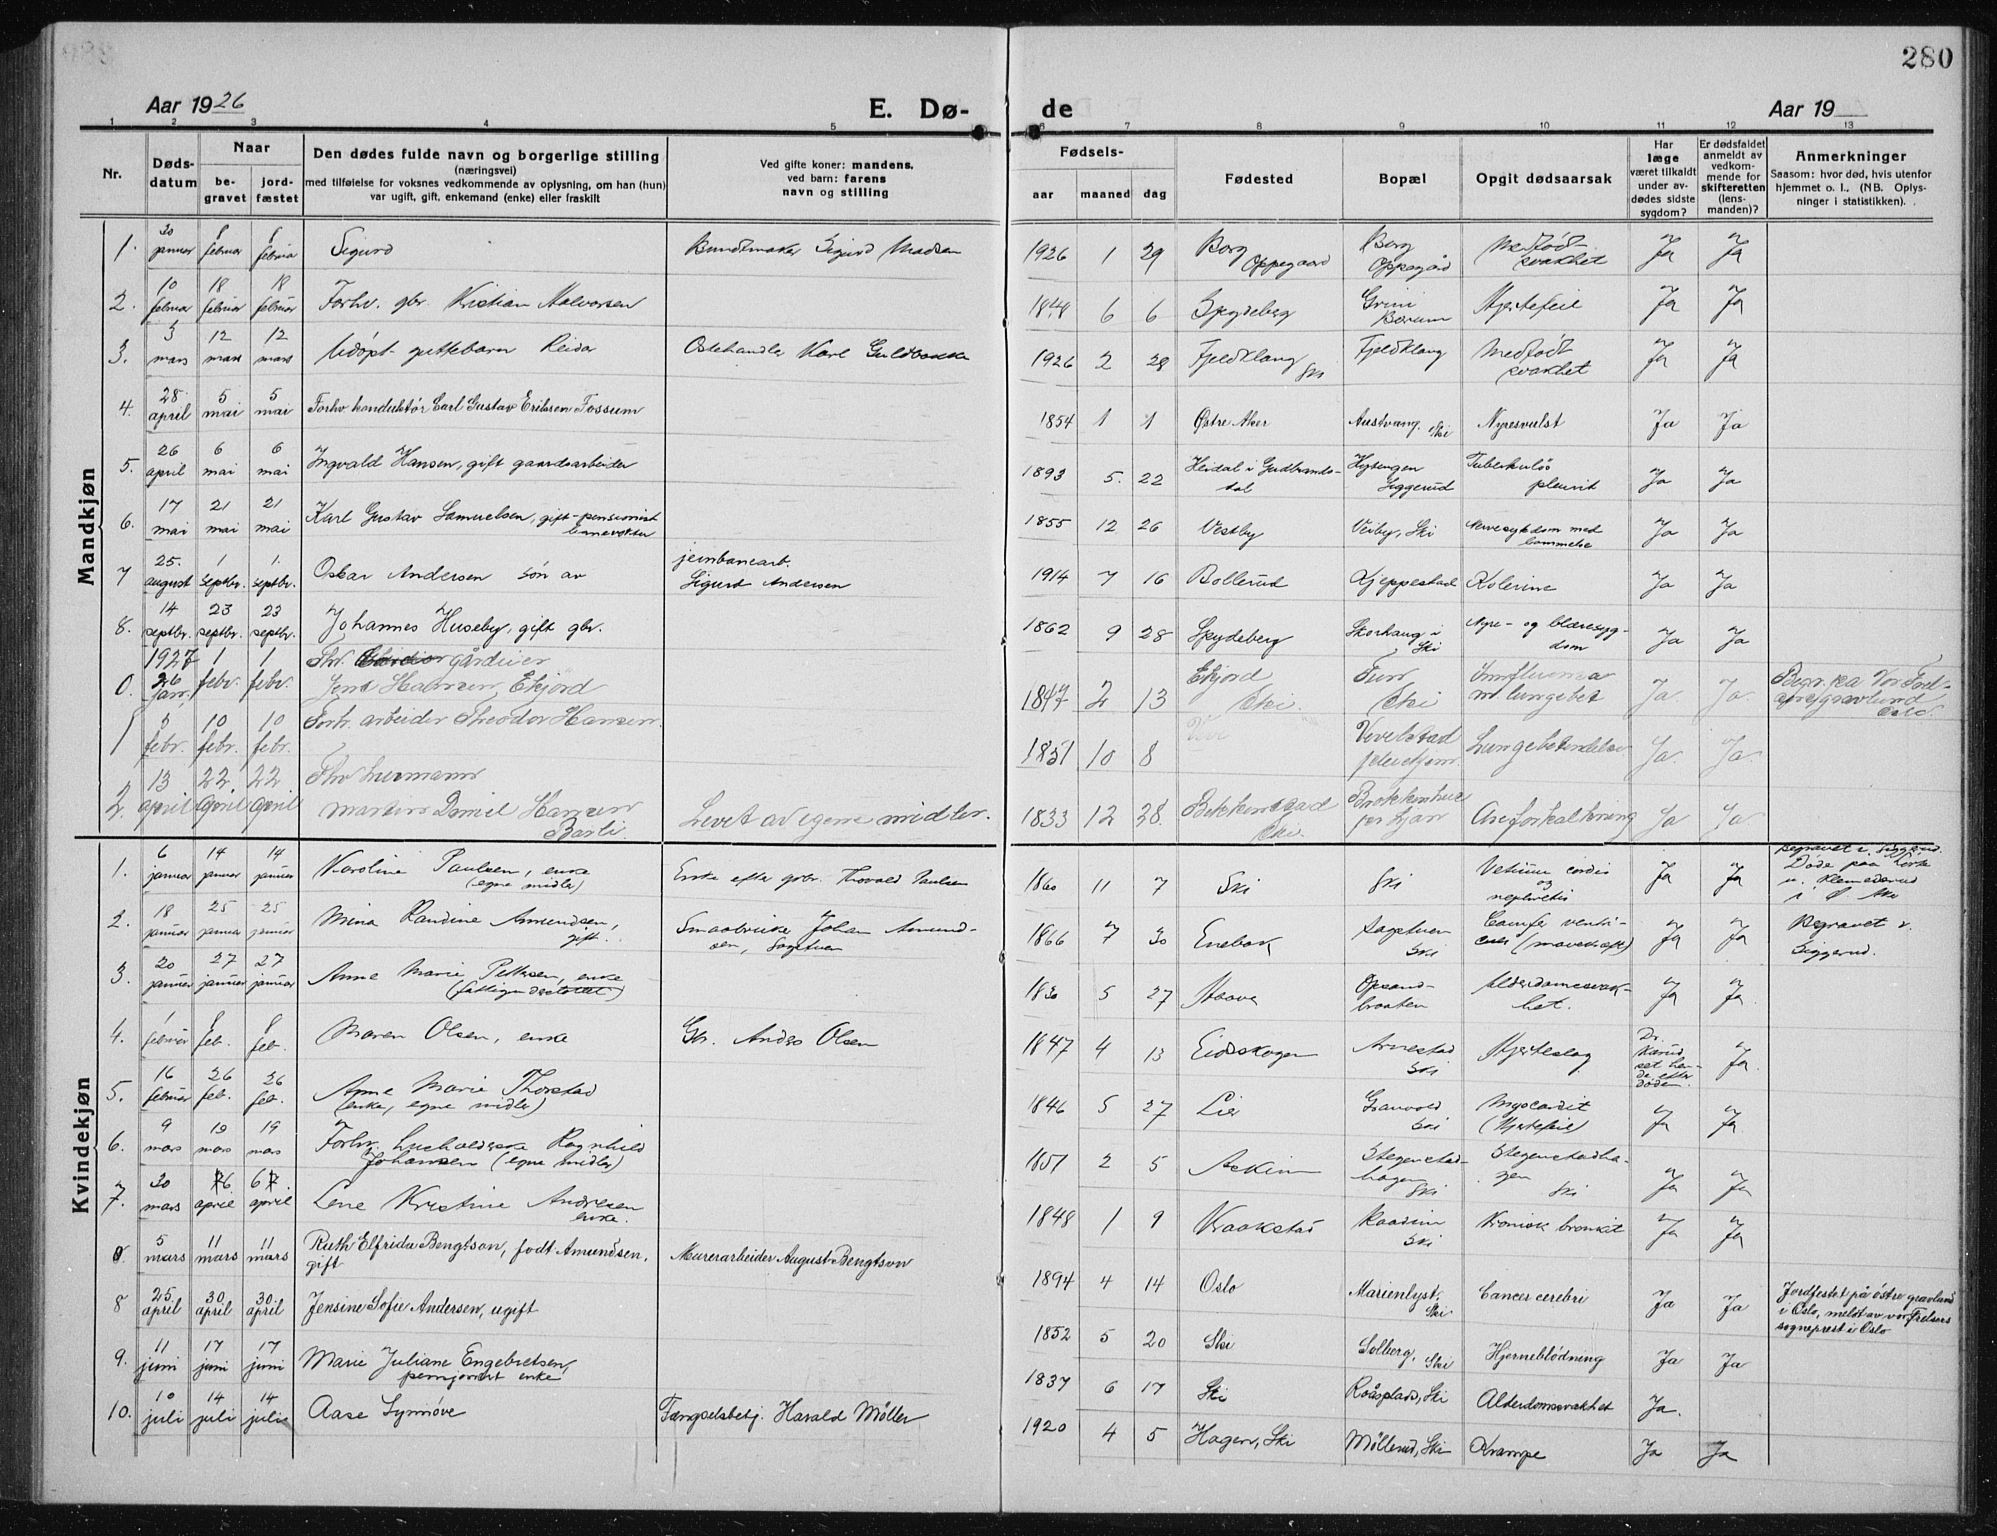 280
Aar 1926
E. Dø-
de
Aar 19
1 2 3 4 5 6 7 8 9 10 11 12 13
Nr.
Døds-
datum
Naar
be-
gravet
jord-
fæstet
Den dødes fulde navn og borgerlige stilling
(næringsvei)
med tilføielse for voksnes vedkommende av oplysning, om han (hun)
var ugift, gift, enkemand (enke) eller fraskilt
Ved gifte koner: mandens,
ved barn: farens
navn og stilling
Fødsels-
aar maaned dag
Fødested
Bopæl
Opgit dødsaarsak
Har
læge
været tilkaldt
under av-
dødes sidste
sygdom?
Er dødsfaldet
anmeldt av
vedkom-
mende for
skifteretten
(lens-
manden)?
Anmerkninger
Saasom: hvor død, hvis utenfor
hjemmet o. l., (NB. Oplys-
ninger i statistikken).
Mandkjøn
1. 30 januar 8 februar 8 februar Sigurd Buntmaker Sigurd Madsen 1926 1 29 Borg Oppegaard Borg Oppegård Medfødt svakhet Ja Ja
2. 10 februar 18 februar 18 februar Forhv. gbr. Kristian Halvorsen 1848 6 6 Spydeberg Grini Bærum Hjertefeil Ja Ja
3. 3 mars 12 mars 12 mars Udøpt guttebarn Reidar Ostehandler Karl Guldbakke 1926 2 28 Fjeldklang Ski Fjeldklang Medfødt svakhet Ja Ja
4. 28 april 5 mai 5 mai Forhv konduktör Carl Gustav Eriksen Fossum 1854 1 1 Østre Aker Austvang, Ski Nyresvulst Ja Ja
5. 26 april 6 mai 6 mai Ingvald Hansen, gift gaardsarbeider 1893 5. 22 Heidal i Gudbrands-
dal Hytengen Siggerud Tuberkuløs pleurit Ja Ja
6. 17 mai 21 mai 21 mai Karl Gustav Samuelsen, gift-pensionist
banevokter 1855 12 26 Vestby Veiby, Ski Nervesykdom med lammelse Ja Ja
7 25. august 1 septbr. 1. septbr. Oskar Andersen sön av jernbanearb.
Sigurd Andersen 1914 7 16 Bollerud Kjeppestad Kolerine Ja Ja
8. 14 septbr. 23 septbr. 23 septbr. Johannes Huseby, gift gbr. 1862 9 28 Spydeberg Skorhaug i Ski Nyre- og blæresyg-
dom Ja Ja
0. 1927 26 Jan. 1 febr. 1 febr. Fhv. gårdeier
Jens Hansen, Ekjord 1847 2 13 Ekjord Ski. Furu Ski Influensa m. lungebet Ja. Ja.
1 3 febr. 10 febr. 10 febr. Forh. arbeider Theodor Hansen. 1851 10 8 Vevelstad Lungebetendelse Ja. Ja.
2. 13 april 22. april 22 april Fhv
Martin Daniel Hansen
Barli. Levet av egne midler. 1833 12 28. Bekkenstad Ski. Åreforkalkning Ja Ja
Kvindekjøn
1. 6 januar 14 januar 14 januar Karoline Paulsen, enke
(egne midler) Enke efter gbr. Thorvald Paulsen 1860 11 7 Ski Ski Vitium cordis og nephritis Ja Ja Begravet v. Siggerud.
Døde paa
u. Klemetsrud
i Ø. Aker
2. 18 januar 25 januar 25 januar Mina Randine Amundsen,
gift. Smaabruker Johan Amund-
sen, Sagstuen 1866 7 30 Enebak Sagstuen Ski Cancer ventri-
culi (mavekræft) Ja Ja Begravet v.
Siggerud.
3. 20 januar 27 januar 27 januar Anne Marie Pettersen, enke
(fattigunderstøttet) 1830 5 27 Opsand-
braaten Alderdomssvak-
het. Ja Ja
4. 1 februar 8 feb. 8 feb. Maren Olsen, enke Gbr. Anders Olsen 1847 4 13 Eidskogen Arnestad Ski Hjerteslag Dr.
Kaarud
set hen-
de efter
døden. Ja
5. 16 februar 26 feb. 26 feb. Anne Marie Thorstad
(enke, egne midler) 1846 5 27 Lier Granvold Ski Myocardit
(Hjertefeil) Ja Ja
6. 9 mars 19 mars 19 mars Forhv. husholderske Ragnhild
Johansen (egne midler) 1851 2 5 Askim Stegenstad-
hagen Ski Stegenstadha-
gen Ski Ja Ja
7. 30 mars 6 april 6 april Lene Kristine Andresen
enke. 1848 1 9 Kraakstad Raasum Ski Kronisk bronkit Ja Ja
0. 5 mars 11 mars 11 mars Ruth Elfrida Bengtson, født Amundsen,
gift Murerarbeider August Bengtson 1894 4 14 Oslo Marienlyst, Ski Cancer cerebri Ja Ja Jordfestet på østre gravlund
i Oslo, meldt av vor Frelsers
sogneprest i Oslo
8 25. april 30. april 30. april Jensine Sofie Andersen, ugift 1852 5 20 Ski Solberg, Ski Hjerneblødning Ja Ja
9. 11 juni 17 juni 17 juni Marie Juliane Engebretsen,
pensjonert enke 1837 6 17 Ski Roåsplads, Ski Alderdomssvakhet Ja.
10. 10 juli 14 juli 14 juli Aase Synnöve Fængselsbetj. Harald Möller 1920 4 5 Hagen, Ski Möllerud, Ski Krampe Ja Ja